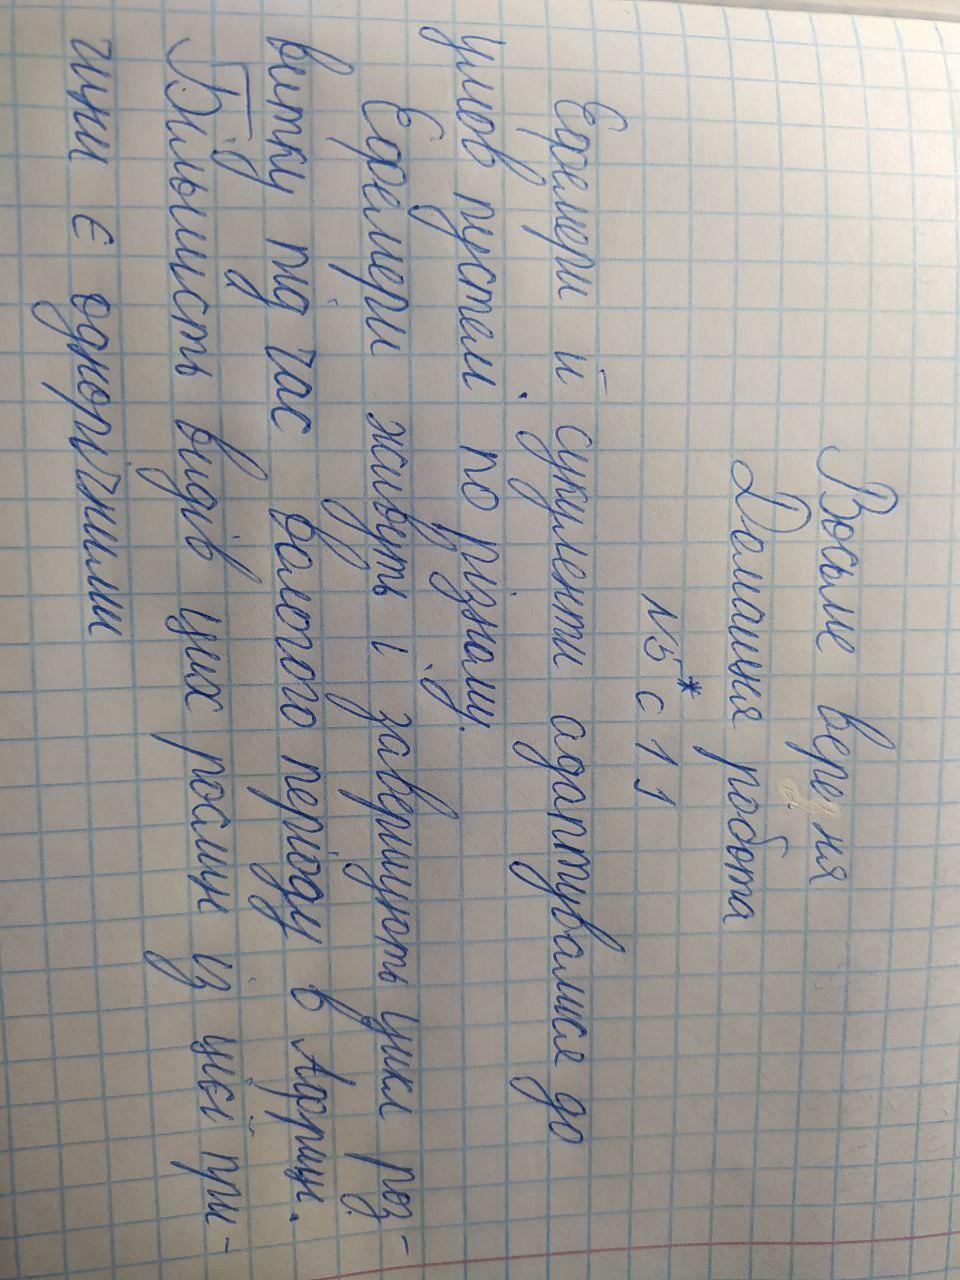 Восьме вересня
Домашня робота
№5* с 11
Ефемери й сукуленти адаптувалися до
умов пустелі по різному.
Ефемери живуть і завершують цикл роз-
витку під час вологого періоду в Африці.
Більшість видів цих рослин із цієї при-
чини є однорічними